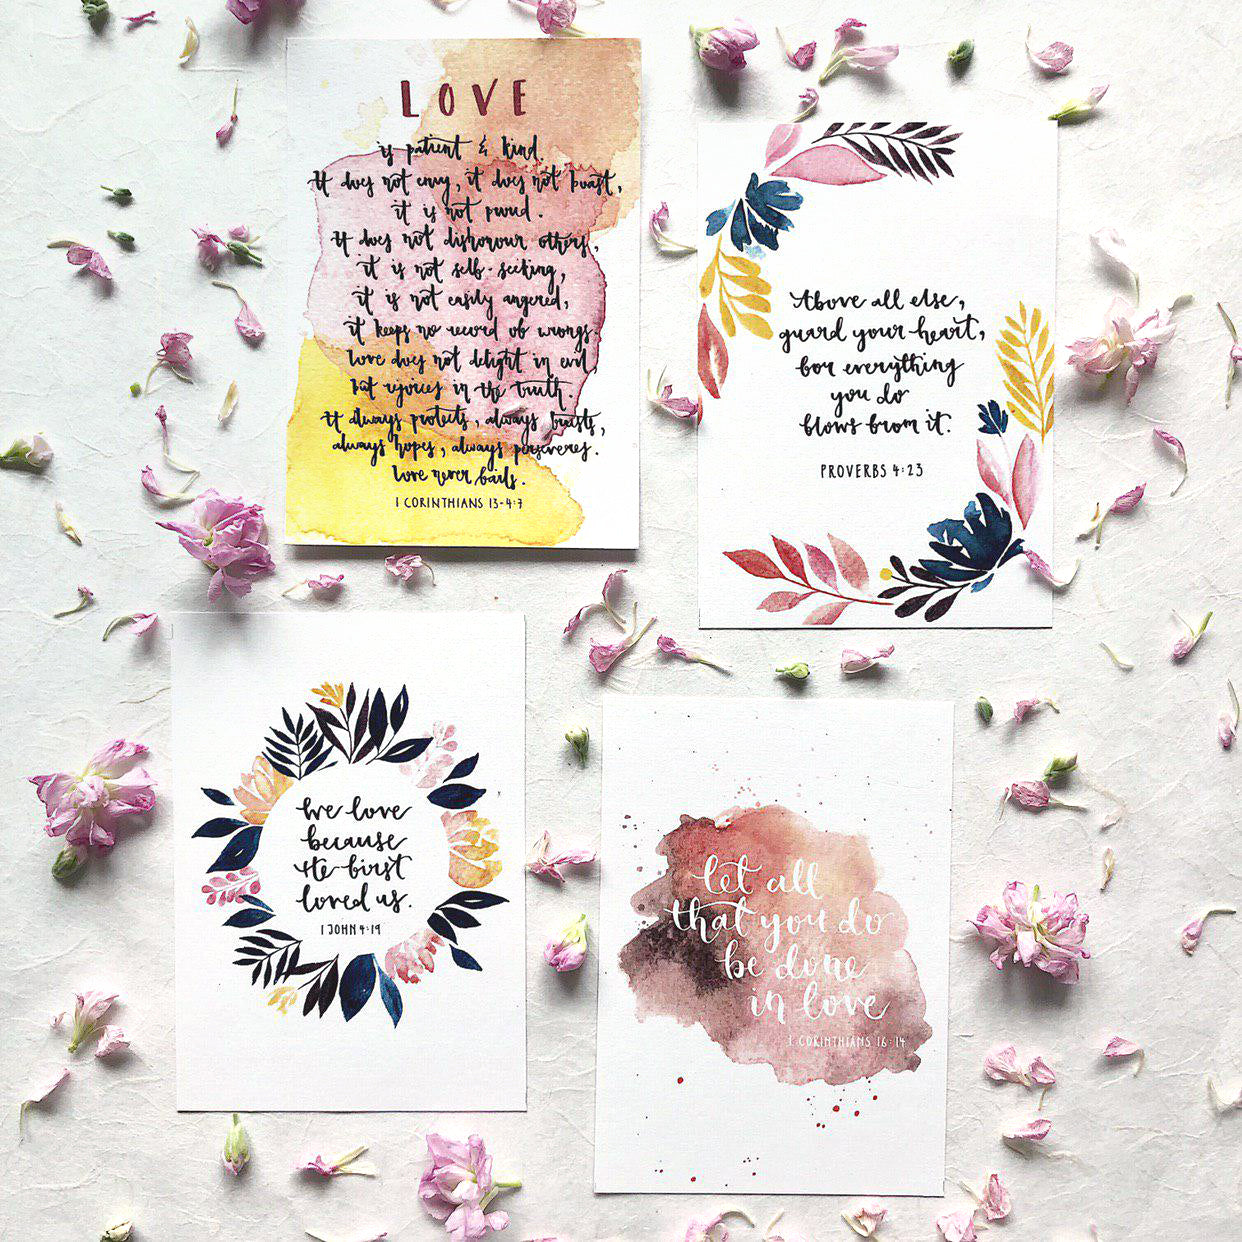 LOVE
is patient & kind.
It does not envy, it does not boast,
it is not proud.
It does not dishonour others,
it is not self-seeking,
it is not easily angered,
it keeps no record of wrongs.
Love does not delight in evil
but rejoices in the truth.
It always protects, always trusts,
always hopes, always perseveres.
Love never fails.
1 CORINTHIANS 13-4:7
Above all else,
guard your heart,
for everything
you do
flows from it.
PROVERBS 4:23
We love
because
He first
loved us.
1 JOHN 4:19
let all
that you do
be done
in love
1 CORINTHIANS 16:14